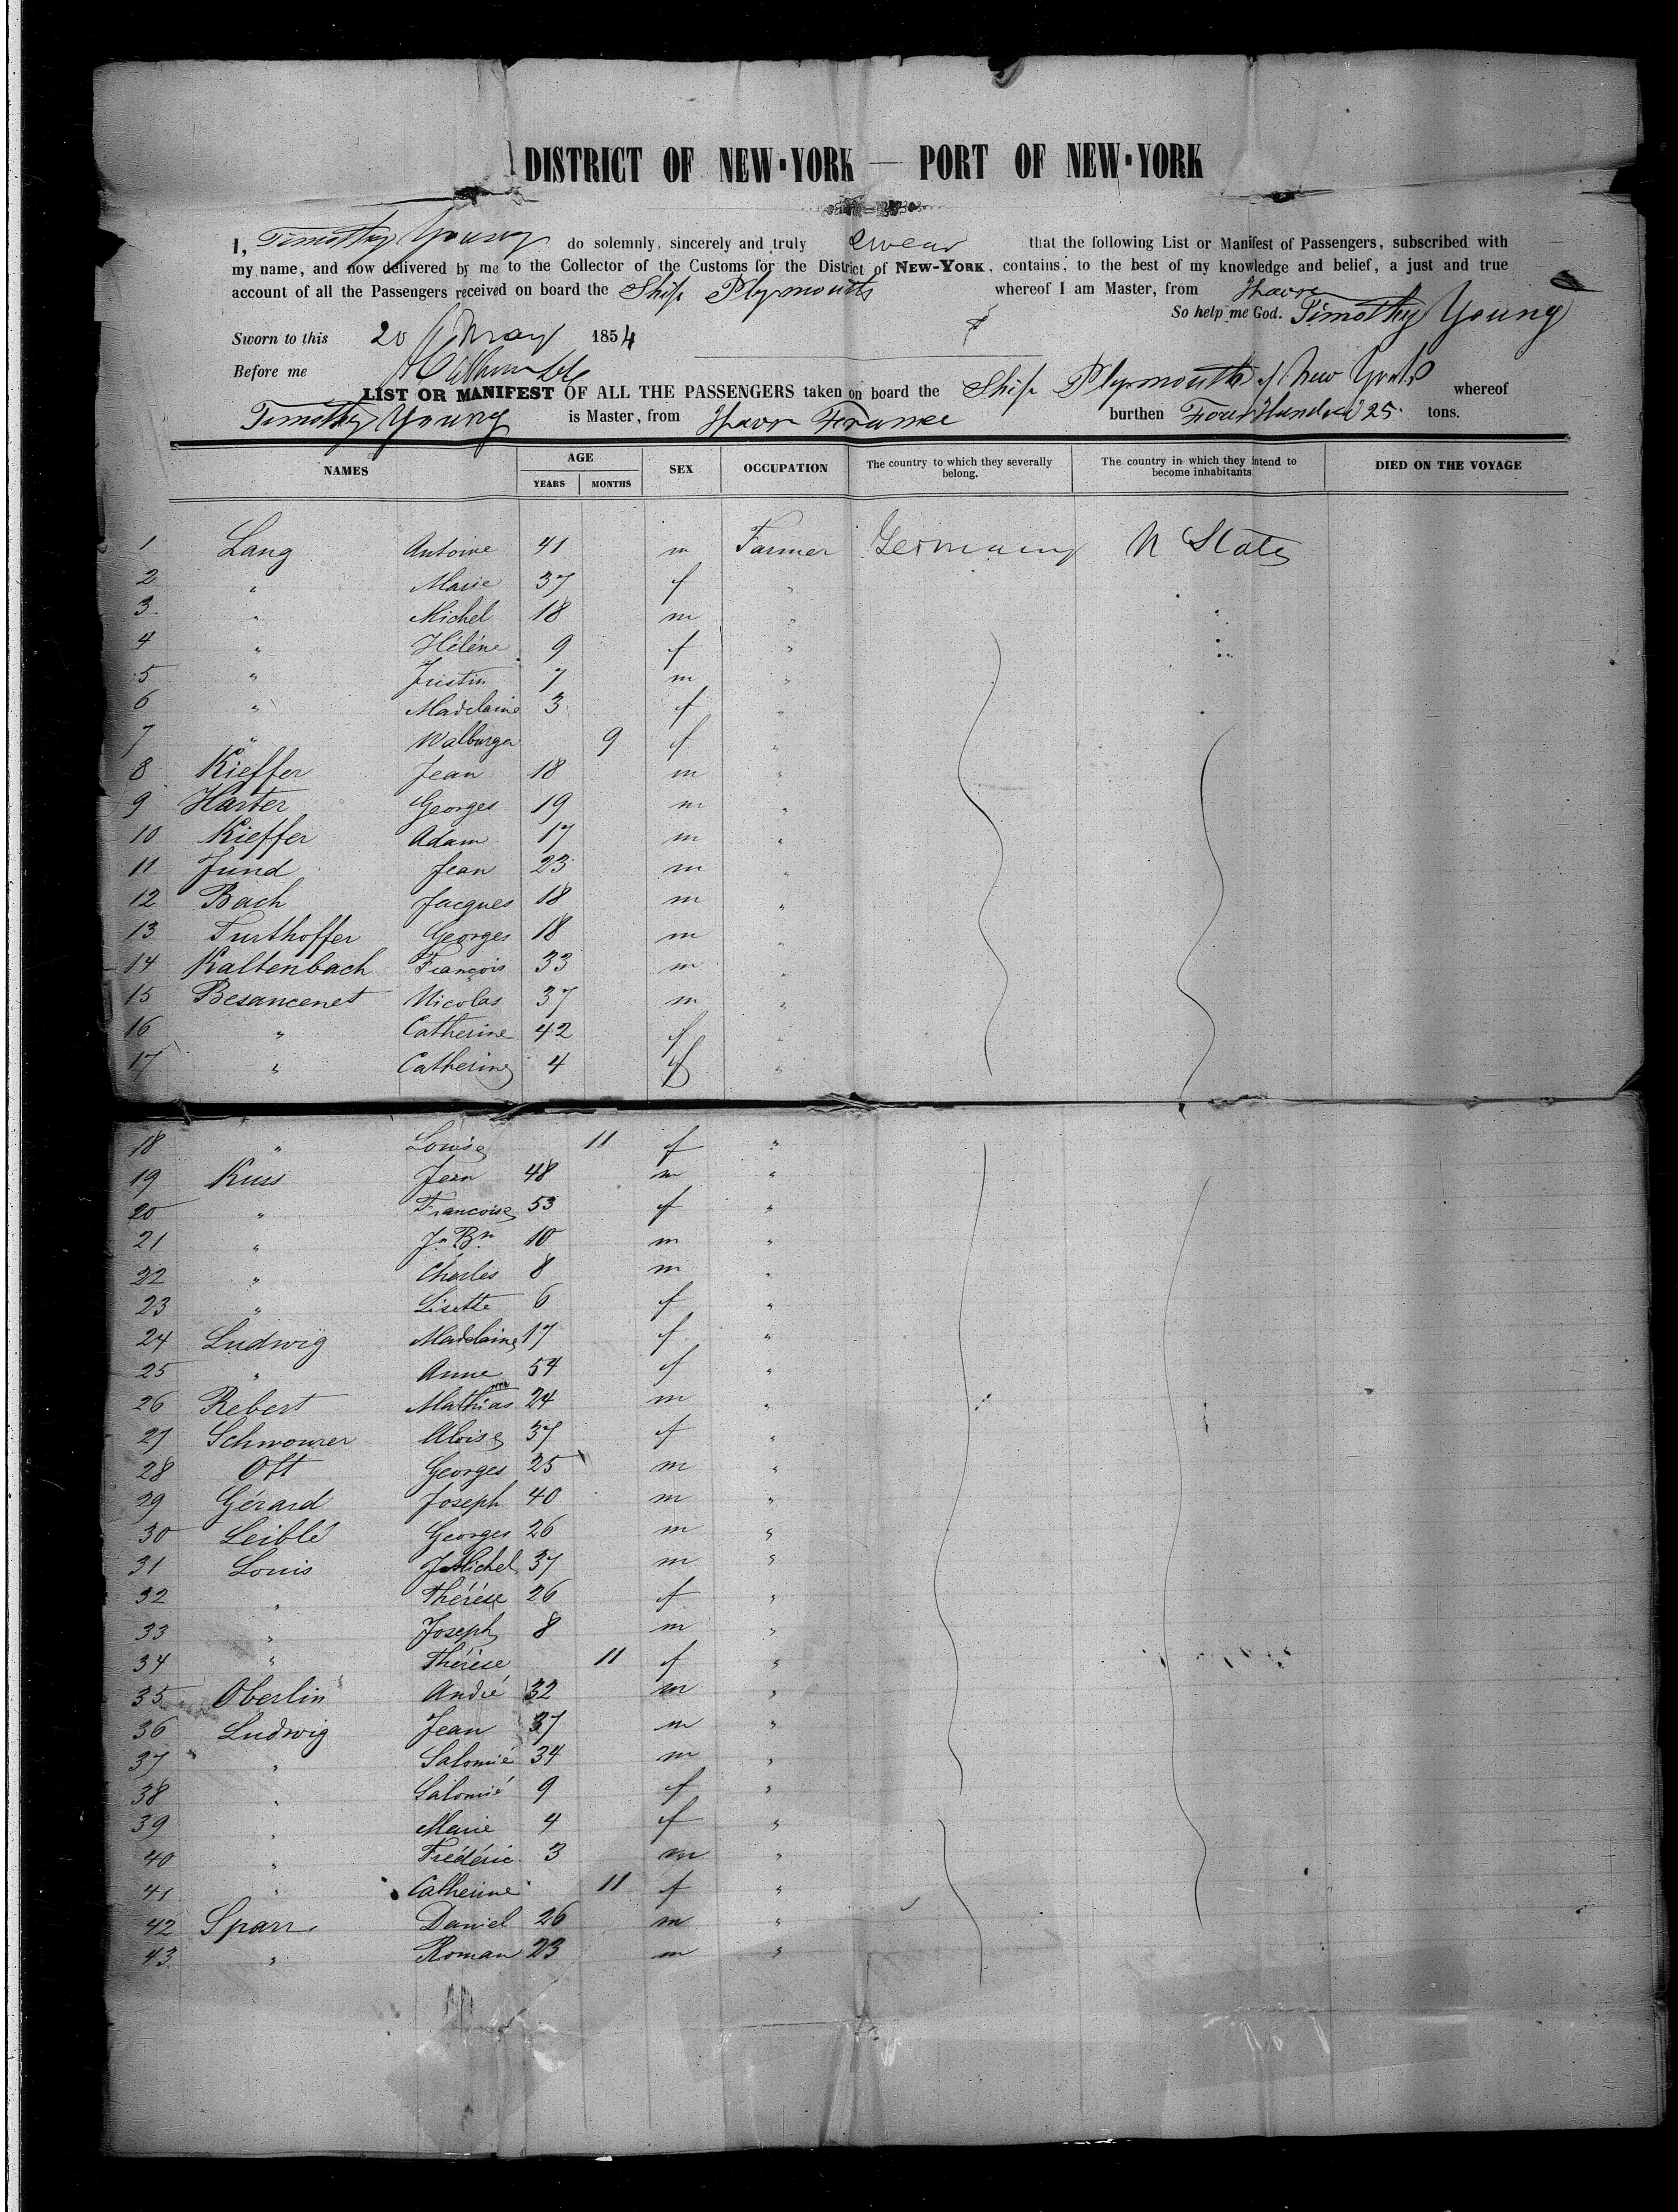 DISTRICT OF NEW-YORK — PORT OF NEW-YORK
I, Timothy Young do solemnly, sincerely and truly swear that the following List or Manifest of Passengers, subscribed with
my name, and now delivered by me to the Collector of the Customs for the District of NEW-YORK, contains, to the best of my knowledge and belief, a just and true
account of all the Passengers received on board the Ship Plymouth whereof I am Master, from Havre
So help me God. Timothy Young
Sworn to this 20 May 1854
Before me
LIST OR MANIFEST OF ALL THE PASSENGERS taken on board the Ship Plymouth of New York whereof
Timothy Young is Master, from Havre France burthen Four Hundred 25 tons.
NAMES AGE YEARS MONTHS SEX OCCUPATION The country to which they severally belong. The country in which they intend to become inhabitants DIED ON THE VOYAGE
1 Lang Antoine 41 m Farmer Germany U States
2 " Marie 37 f "
3 " Michel 18 m "
4 " Hélène 9 f "
5 " Justin 7 m "
6 " Madelaine 3 f "
7 " Walburga 9 f "
8 Kieffer Jean 18 m "
9 Harter Georges 19 m "
10 Kieffer Adam 17 m "
11 Jund Jean 23 m "
12 Bach Jacques 18 m "
13 Furthoffer Georges 18 m "
14 Kaltenbach François 33 m "
15 Besancenet Nicolas 37 m "
16 " Catherine 42 f "
17 " Catherine 4 f "
18 " Louise 11 f "
19 Kuss Jean 48 m "
20 " Francoise 53 f "
21 " Jn Bn 10 m "
22 " Charles 8 m "
23 " Lisette 6 f "
24 Ludwig Madelaine 17 f "
25 " Anne 54 f "
26 Rebert Mathias 24 m "
27 Schwourer Aloise 37 f "
28 Ott Georges 25 m "
29 Gérard Joseph 40 m "
30 Leiblé Georges 26 m "
31 Louis J Michel 37 m "
32 " Thérèse 26 f "
33 " Joseph 8 m "
34 " Thérèse 11 f "
35 Oberlin André 32 m "
36 Ludwig Jean 37 m "
37 " Salomé 34 m "
38 " Salomé 9 f "
39 " Marie 4 f "
40 " Frédéric 3 m "
41 " Catherine 11 f "
42 Sparr Daniel 26 m "
43 " Roman 23 m "